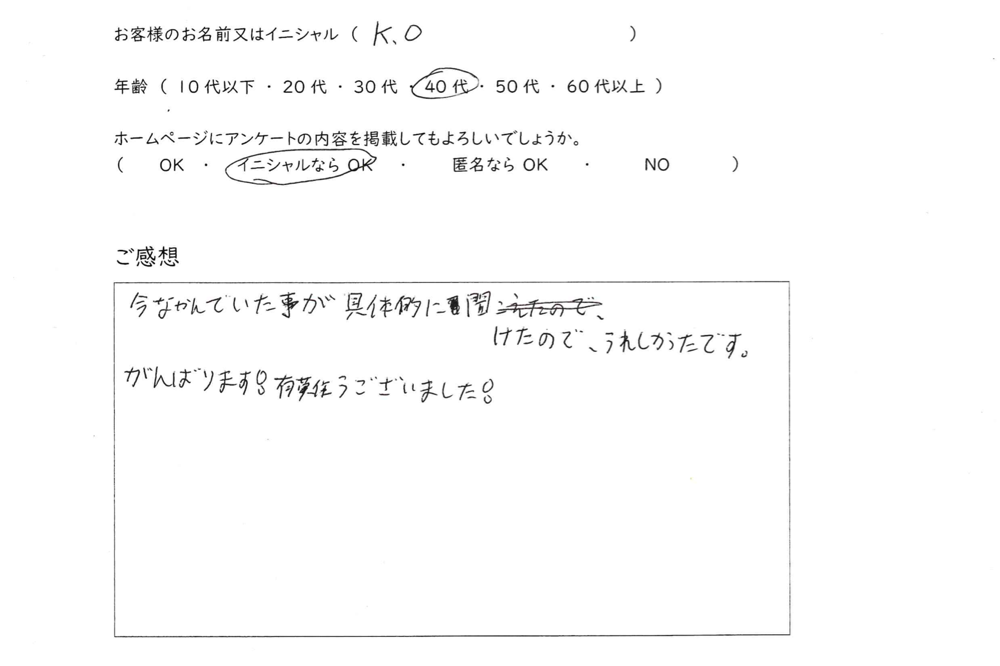 お客様のお名前又はイニシャル ( K.O )
年齢 ( 10代以下 ・ 20代 ・ 30代 ・ 40代 ・ 50代 ・ 60代以上 )
ホームページにアンケートの内容を掲載してもよろしいでしょうか。
( OK ・ イニシャルなら OK ・ 匿名なら OK ・ NO )
ご感想
今なやんでいた事が 具体的に聞えたので、
けたので、うれしかったです。
がんばります! 有難うございました!